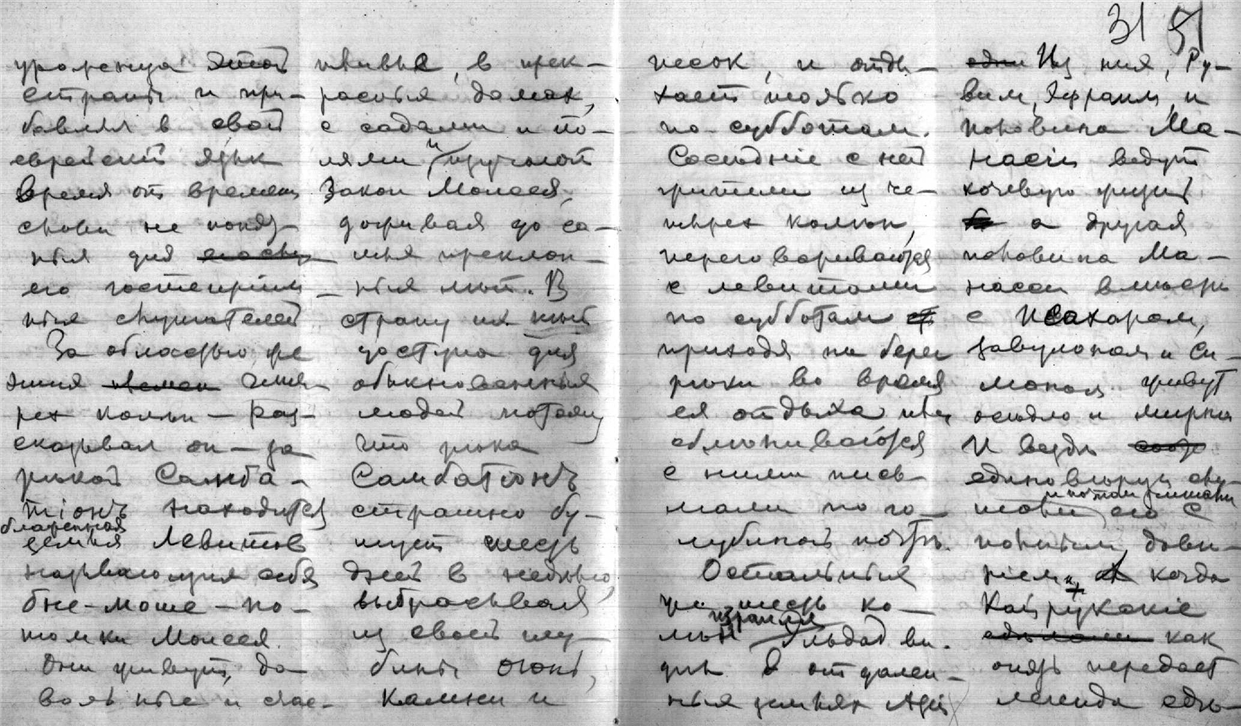 31 51
уроженца этой
страны и при-
бавлял в свой
еврейский язык
время от времени
слова не понят-
ныя для
его гостеприим-
ных слушателей
За областью
этих четы-
рех колен — раз-
сказывал он — за
рекой Самба-
тіонъ находится
блаженная
земля Левитов
называющих себя
бне-моше — по-
томки Моисея.
Они живут, до-
вольные и счас-
тливые, в прек-
расных домах,
с садами и по-
лями и изучают
Закон Моисея,
доживая до са-
мых преклон-
ных лет. В
страну их нет
доступа для
обыкновенных
людей потому
что река
Самбатіонъ
страшно бу-
шует шесть
дней в неделю,
выбрасывая
из своей глу-
бины огонь,
камни и
песок, и отды-
хает только
по субботам.
Соседніе с ней
жители из че-
тырех колен,
переговариваются
с левитами
по субботам
приходя на берег
реки во время
ея отдыха и
обмениваются
с ними пись-
мами по го-
лубиной почте.
Остальныя
же шесть ко-
лен Израиля Эльдад ви-
дел в отдален-
ных землях Азіи
Из них, Ру-
вим, Эфраим, и
половина Ма-
насіи ведут
кочевую жизнь
а другая
половина Ма-
насіи вместе
с Исахаром,
Завулоном и Си-
моном живут
оседло и мирно
И везде
единоверцы слу-
шали его с
полным дове-
ріем, когда
Кайруанскіе
как
опять передает
легенда сде-